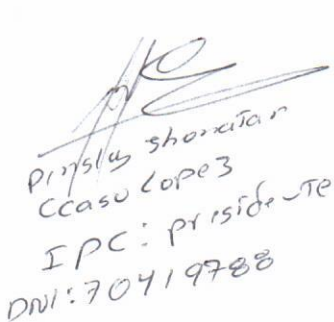 Shonatan
Ccasu Lopez
IPC: presidente
DNI: 70419788